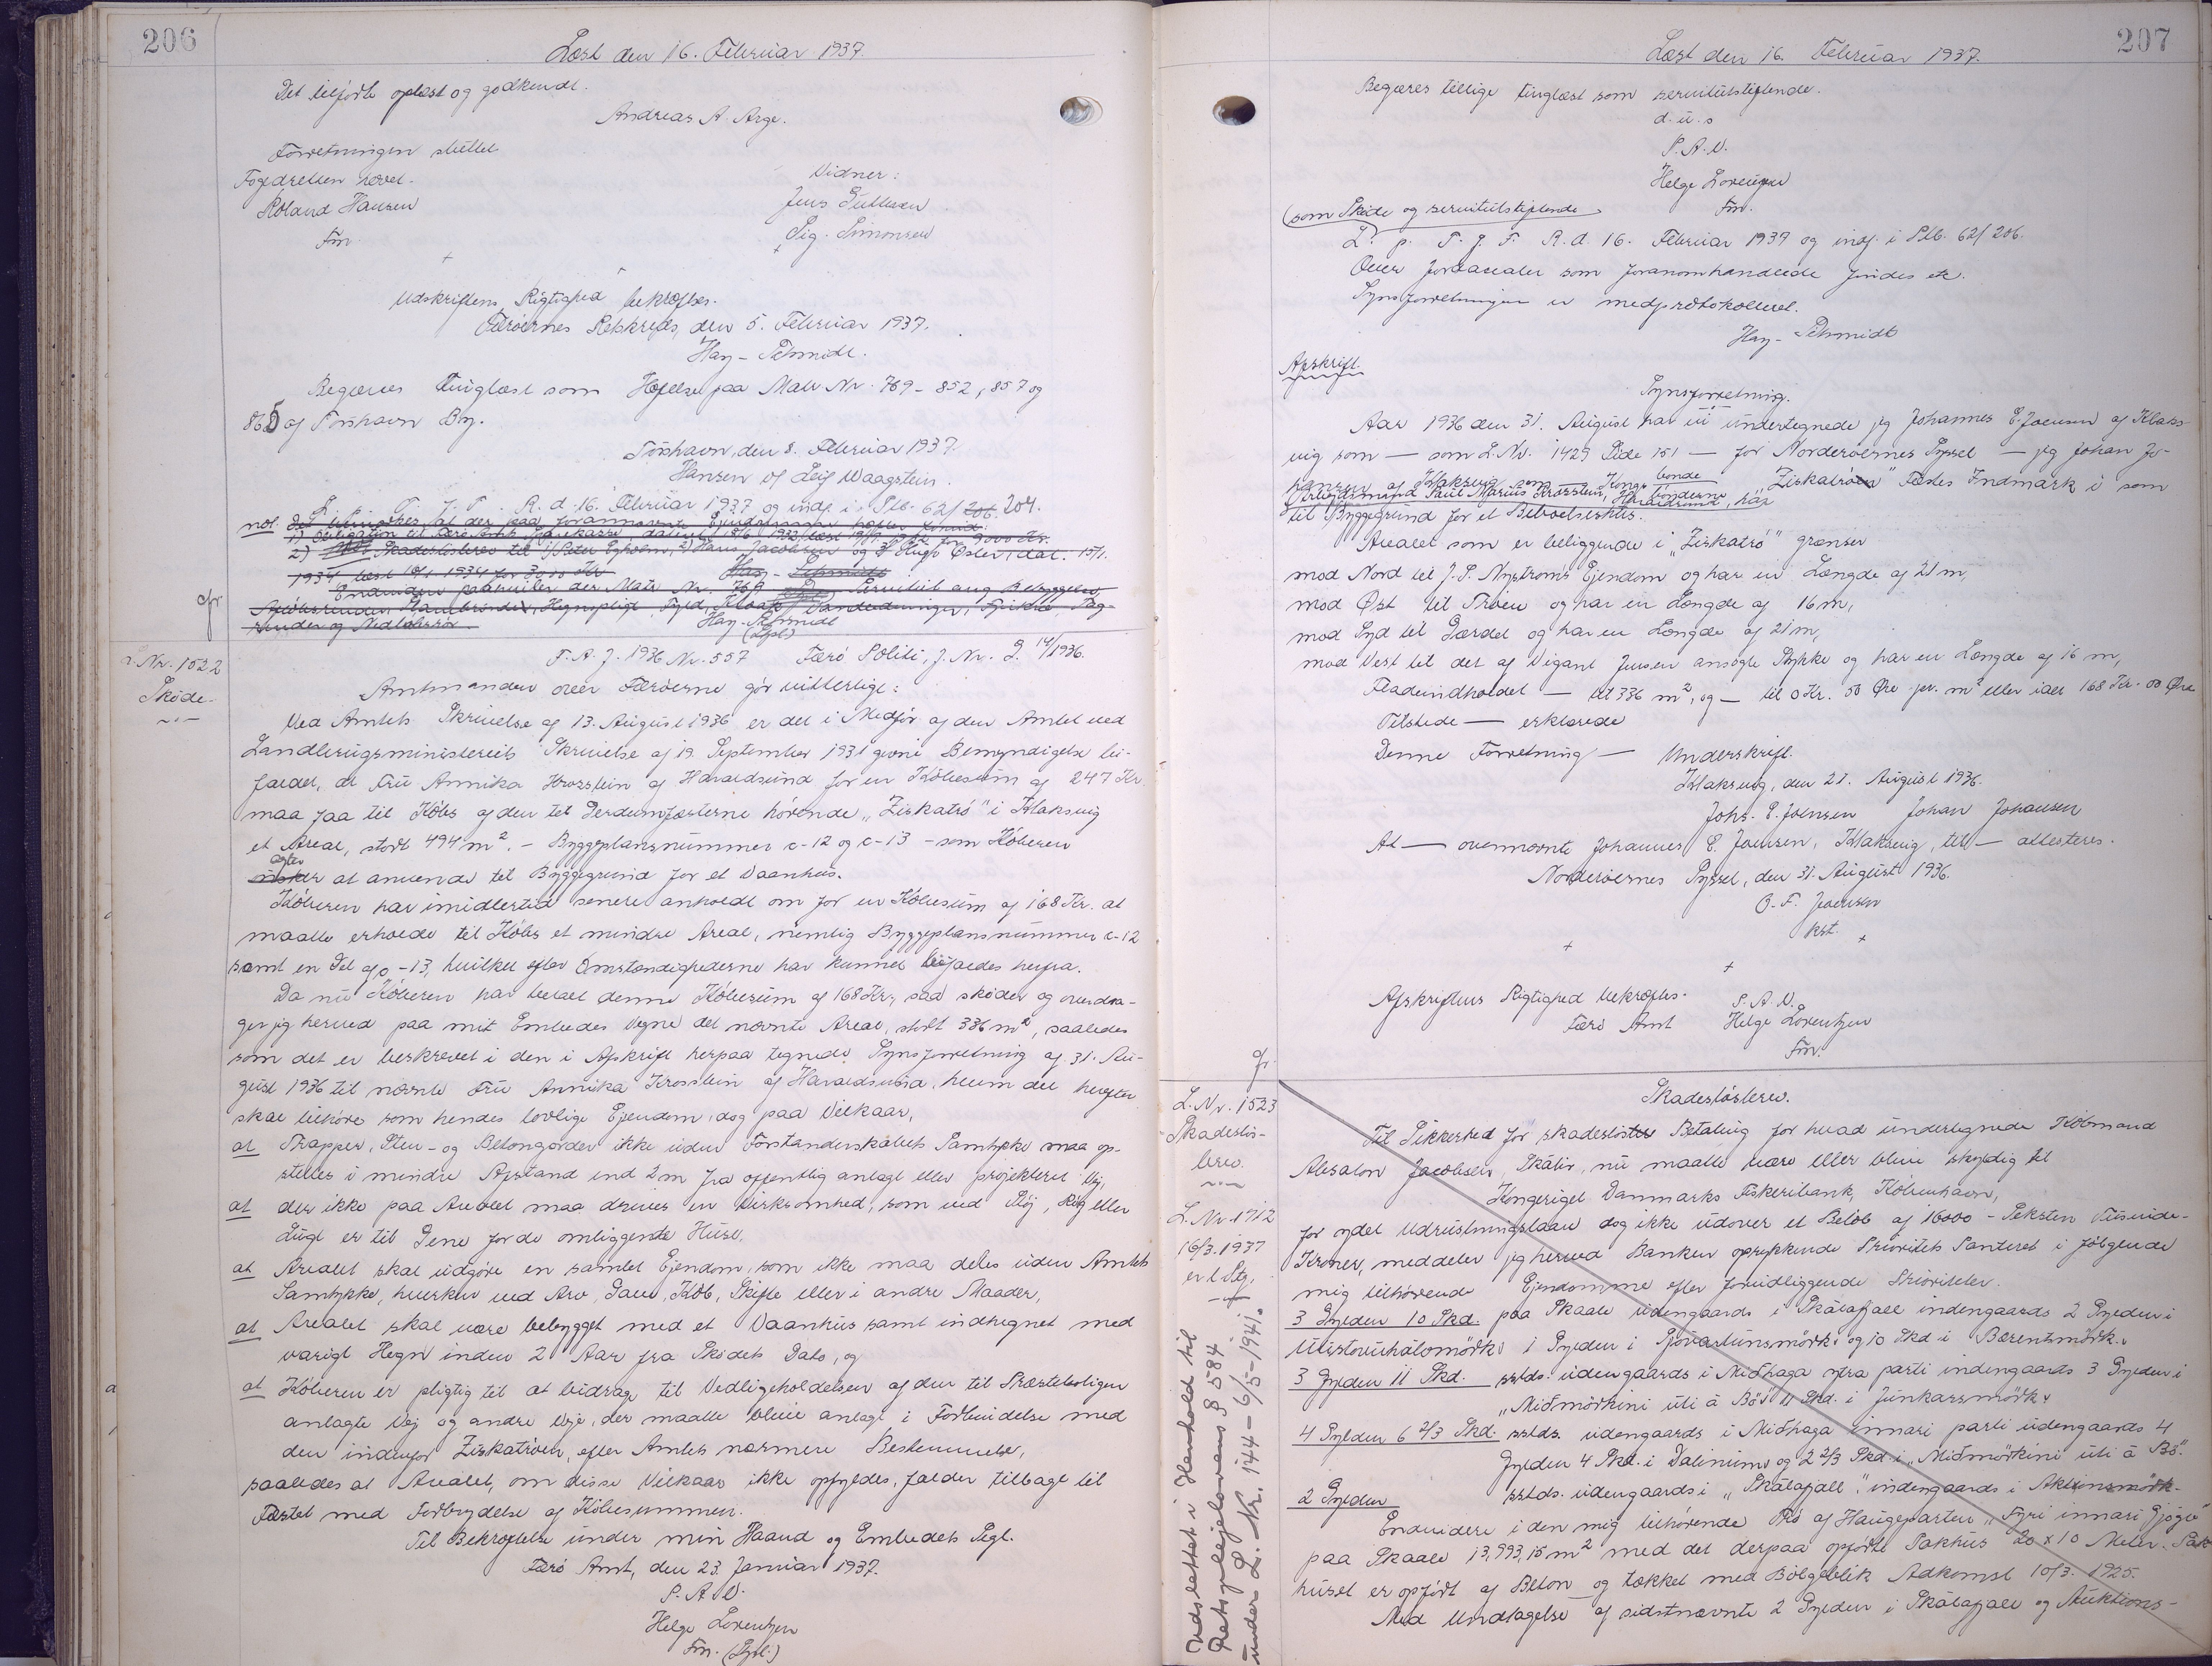 206
Læst den 16. Februar 1937.
Det tilførte oplæst og godkendt.
Andreas A. Arge.
Forretningen sluttet
Fogedretten hævet.
Roland Hansen
Fm.
Vidner:
Sig. Simonsen
Udskriftens Rigtighed bekræftes.
Færøernes Retskreds, den 5. Februar 1937.
Hay-Schmidt.
Begæres tinglæst som Hæftelse paa Matr Nr. 769-852, 857 og
865 af Torshavn By.
Torshavn, den 8. Februar 1937.
Hansen og Leif Waagstein.
R. d. 16. Februar 1937 og indf. i Plb. 62/206. 204.
not. Det bemærkes, at der paa forannævnte Ejendomme hæfter forud:
1934 læst 1934 for 3000 Kr Hay-Schmidt
Endvidere paahviler der Matr Nr. 769 Servitut ang Bebyggelse,
render og Nedløbsrør.
Hay-Schmidt
cfr
L. Nr. 1522
Skøde
F.A.J. 1936 Nr. 557 Færø Politi, J. Nr. J. 14/1936.
Amtmanden over Færøerne gør vitterligt:
Ved Amtets Skrivelse af 13. August 1936 er det i Medfør af den Amtet ved
Landbrugsministeriets Skrivelse af 19. September 1931 givne Bemyndigelse bi-
faldet, at Fru Annika Krosslein af Haraldsund for en Købesum af 247 Kr.
maa faa til Købs af den til Gerdumfæsterne hørende „Ziskatrø" i Klaksvig
et Areal, stort 494 m². - Byggeplansnummer c-12 og c-13 - som Køberen
agter
ønsker at anvende til Byggegrund for et Vaanhus.
Køberen har imidlertid senere anholdt om for en Købesum af 168 Kr. at
maatte erholde til Købs et mindre Areal, nemlig Byggeplansnummer c-12
samt en Del af c-13, hvilket efter Omstændighederne har kunnet bifaldes herfra.
Da nu Køberen har betalt denne Købesum af 168 Kr, saa skøder og overdra-
ger jeg herved paa mit Embedes Vegne det nævnte Areal, stort 336 m², saaledes
som det er beskrevet i den i Afskrift herpaa tegnede Synsforretning af 31. Au-
gust 1936 til nævnte Fru Annika Krosslein af Haraldsund, hvem det herefter
skal tilhøre som hendes lovlige Ejendom, dog paa Vilkaar,
at Trapper, Sten- og Betongærder ikke uden Forstanderskabets Samtykke maa op-
stilles i mindre Afstand end 2 m fra offentlig anlagt eller projekteret Vej,
at der ikke paa Arealet maa drives en Virksomhed, som ved Støj, Røg eller
Lugt er til Gene for de omliggende Huse,
at Arealet skal udgøre en samlet Ejendom, som ikke maa deles uden Amtets
Samtykke, hverken ved Arv, Gave, Køb, Skifte eller i andre Maader,
at Arealet skal være bebygget med et Vaanhus samt indhegnet med
varigt Hegn inden 2 Aar fra Skødets Dato, og
at Køberen er pligtig til at bidrage til Vedligeholdelsen af den til Præsteboligen
anlagte Vej og andre Veje, der maatte blive anlagt i Forbindelse med
den indenfor Ziskatrøen, efter Amtets nærmere Bestemmelse,
saaledes at Arealet, om disse Vilkaar ikke opfyldes, falder tilbage til
Fæstet med Forbrydelse af Købesummen.
Til Bekræftelse under min Haand og Embedets Segl.
Færø Amt, den 23. Januar 1937.
P.A.V.
Helge Lorentzen
Fm. (Sgl.)
207
Læst den 16. Februar 1937.
Begæres tillige tinglæst som servitutstiftende.
d.u.s
P.A.V.
Helge Lorentzen
Fm.
(som Skøde og servitutstiftende
L. p. T. f. F. R. d. 16. Februar 1937 og indf. i Plb. 62/206.
Over Jordarealer som foranomhandlede findes etc.
Synsforretningen er medprotokolleret.
Hay-Schmidt
Afskrift.
Synsforretning.
Aar 1936 den 31. August har vi undertegnede jeg Johannes E. Joensen af Klaks-
vig som — som L.Nr. 1429 Side 151 — for Norderøernes Syssel — jeg Johan Jo-
hansen af Klaksvig som Kongsbonde „Ziskatrøen" Fædes Indmark i som
Arbejdsmand Poul Marius Krosslein, Haraldsund, har
til Byggegrund for et Beboelseshus.
Arealet som er beliggende i „Ziskatrø" grænser
mod Nord til J. P. Nystroms Ejendom og har en Længde af 21 m,
mod Øst til Trøen og har en Længde af 16 m,
mod Syd til Gærdet og har en Længde af 21 m,
mod Vest til det af Vigant Jensen ansøgte Stykke og har en Længde af 16 m,
Fladeindholdet — til 336 m², og — til 0 Kr. 50 Øre pr. m² eller ialt 168 Kr. 00 Øre
Tilstede — erklærede
Denne Forretning — Underskrift.
Klaksvig, den 21. August 1936.
Johs. E. Joensen Johan Johansen
At — ovennævnte Johannes E. Joensen, Klaksvig, til — attesteres.
Norderøernes Syssel, den 31. August 1936.
O. F. Joensen
kst.
Afskriftens Rigtighed bekræftes.
Færø Amt
P.A.V.
Helge Lorentzen
Fm.
cfr.
L. Nr. 1523
Skadesløs-
brev.
L. Nr. 1712
16/3. 1937
Udslettet i Henhold til
Retsplejelovens § 584
under L. Nr. 144 - 6/5-1941.
Skadesløsbrev.
Til Sikkerhed for skadesløs Betaling for hvad undertegnede Købmand
Absalon Jacobsen, Skálir, nu maatte være eller blive skyldig til
Kongeriget Danmarks Fiskeribank, København,
for ydet Udrustningslaan dog ikke udover et Beløb af 16000 - Seksten Tusinde-
Kroner, meddeler jeg herved Banken oprykkende Prioritets Panteret i følgende
mig tilhørende Ejendomme efter foudliggende Prioriteter.
3 Gylden 10 Skd. paa Skaale udengaards i Skálafjall indengaards 2 Gylden i
1 Gylden i og 10 Skd i Børentsmørk.
3 Gylden 11 Skd. sstds. udengaards i Miðhaga ytra parti indengaards 3 Gylden i
„Miðmørkini úti á Bø" 11 Skd. i Junkarsmørk.
4 Gylden 6 2/3 Skd. sstds. udengaards i Miðhaga innari parti udengaards 4
Gylden 4 Skd. i Dalinum og 2 2/3 Skd i „Miðmørkini úti á Bø".
2 Gylden sstds. udengaards i „Skálafjall", indengaards i Akurinsmørk.
Endvidere i den mig tilhørende Trø af Haugeparten „Fyri innari Gjógv"
paa Skaale 13,993,15 m² med det derpaa opførte Pakhus 20 x 10 Meter. Pak-
huset er opført af Beton og tækket med Bølgeblik Adkomst 10/3. 1925.
Med Undtagelse af sidstnævnte 2 Gylden i Skálafjall og Auktions-